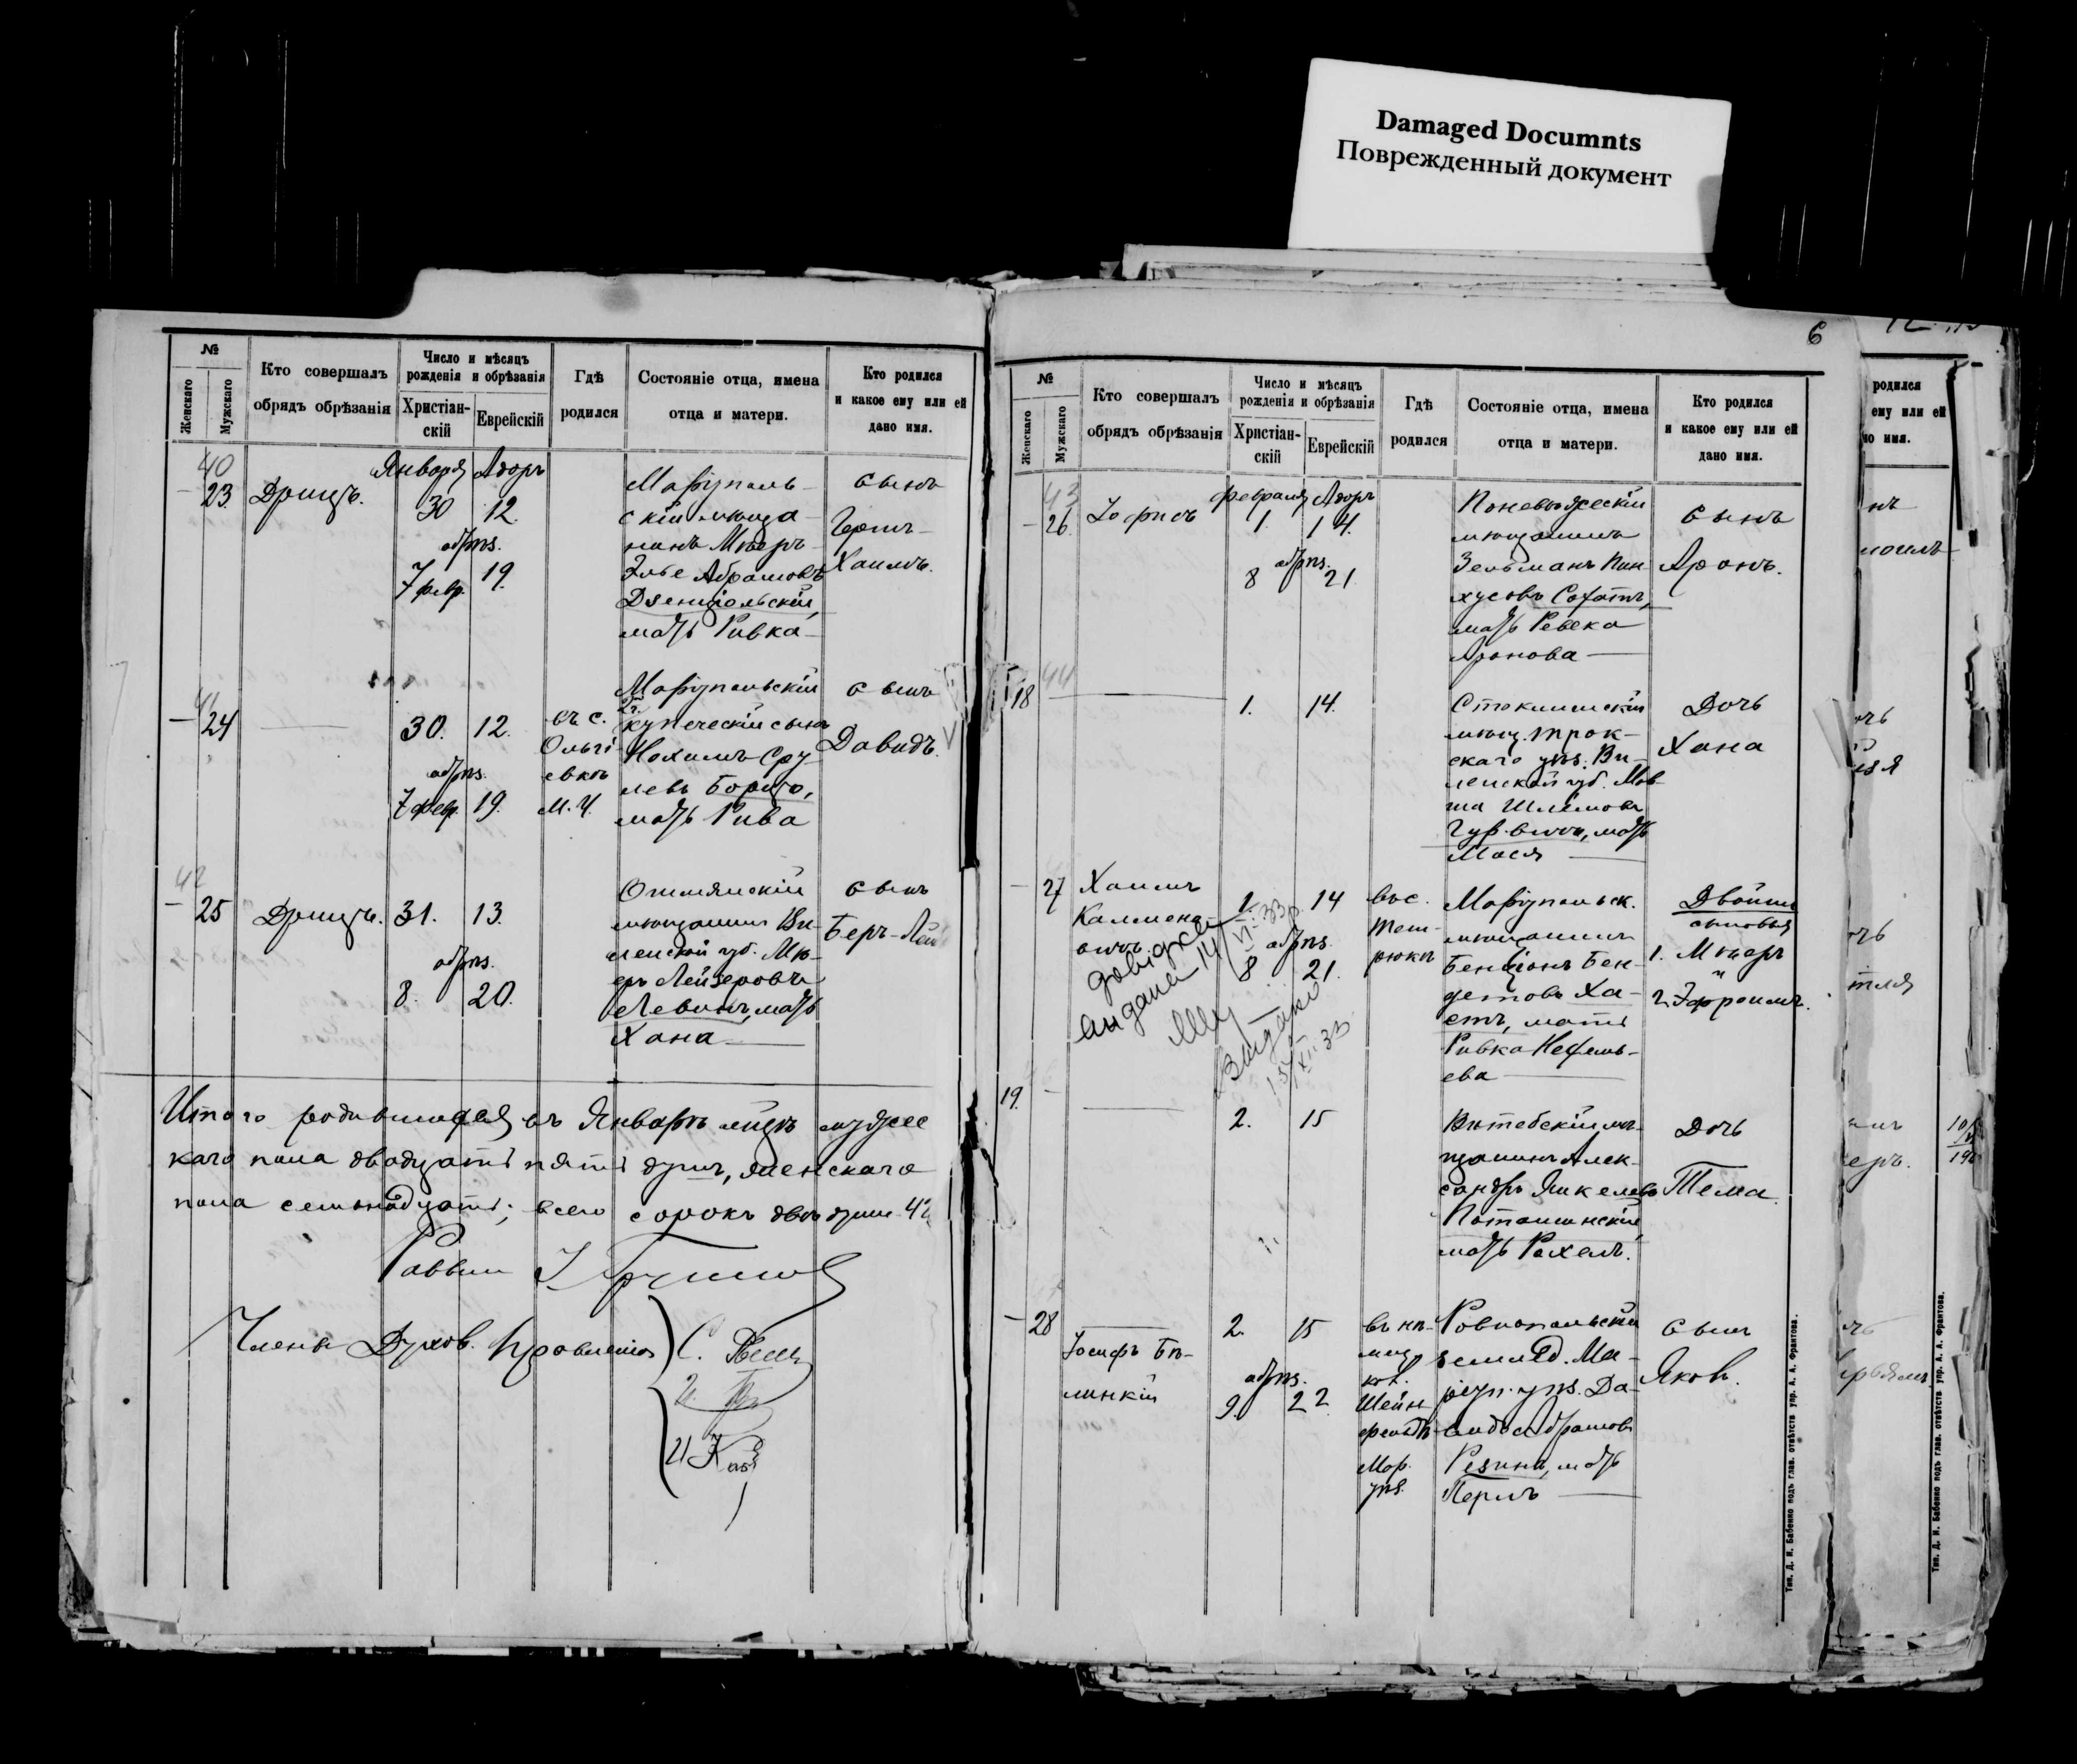 Damaged Documnts
Поврежденный документ
№
Женскаго
Мужскаго
Кто совершалъ
обрядъ обрѣзанія
Число и мѣсяцъ
рожденія и обрѣзанія
Христіан-
скій
Еврейскій
Гдѣ
родился
Состояніе отца, имена
отца и матери.
Кто родился
и какое ему или ей
дано имя.
40
Января Адоръ
23. Дрицъ. 30 12.
обрѣз.
7 февр. 19.
Маріуполь-
скій мѣща-
нинъ Мѣеръ-
Элье Абрамовъ
Дзенціольскій,
мать Ривка
сынъ
Герш-
Хаимъ.
41
24 30. 12.
обрѣз.
7 февр. 19.
въ с.
Ольгі-
евкѣ
М. У.
Маріупольскій
2 г.
купеческій сынъ
Нохимъ Сру-
левъ
мать Рива
сынъ
Давидъ.
42
25 Дрицъ. 31. 13.
обрѣз.
8. 20.
Ошмянскій
мѣщанинъ Ви-
ленской губ. Мѣ-
еръ Лейзеровъ
Левинъ, мать
Хана
сынъ
Беръ-
Итого родившихся въ Январѣ м-цѣ мужес
каго пола двадцать пять душъ, женскаго
пола семнадцать; всего сорокъ двѣ души 42
Раввинъ
Члены Духов. Правленія
С.
6
№
Женскаго
Мужскаго
Кто совершалъ
обрядъ обрѣзанія
Число и мѣсяцъ
рожденія и обрѣзанія
Христіан-
скій
Еврейскій
Гдѣ
родился
Состояніе отца, имена
отца и матери.
Кто родился
и какое ему или ей
дано имя.
43
Февраля Адоръ
26. Іофисъ 1. 14.
обрѣз.
8 21
Поневѣжскій
мѣщанинъ
Зельманъ Пин-
хусовъ
мать Ревека
Аронова
сынъ
Аронъ.
44
18 1. 14.
Стоклишскій
мѣщ. Трок-
скаго уѣз. Ви-
ленской губ. Мов-
ша Шлёмовъ
Гурвичъ, мать
Мася
Дочь
Хана
27 Хаимъ
Калмено-
вичъ
1. 14
обрѣз.
8 21.
въ с.
Тем-
рюкѣ
Маріупольск.
мѣщанинъ
Бенціонъ Бен-
детовъ Ха-
етъ, мать
Ривка Нефель-
ева
Двойни
сыновья
1. Мееръ
и
2. Эфроимъ.
довідка
видана 14/VI-33 р.
Видано
15/XII 33
19.
2. 15
Витебскій мѣ-
щанинъ Алек-
сандръ Янкелевъ
Поташинскій,
мать Рохель.
Дочь
Тема
28
Іосифъ Бѣ-
линкій
2. 15
обрѣз.
9. 22
въ нѣ-
мец.
кол.
Шейн-
фельдъ
Мар.
уѣз.
Ровнопольскій
земл-д. Ма-
ріуп. уѣз. Да-
видъ Абрамовъ
Резинъ, мать
Перль
сынъ
Яковъ.
Тип. Д. И. Бабенко подъ глав. отвѣтств. упр. А. А. Франтова.
родился
ему или ей
но имя.
Тип. Д. И. Бабенко подъ глав. отвѣтств. упр. А. А. Франтова.